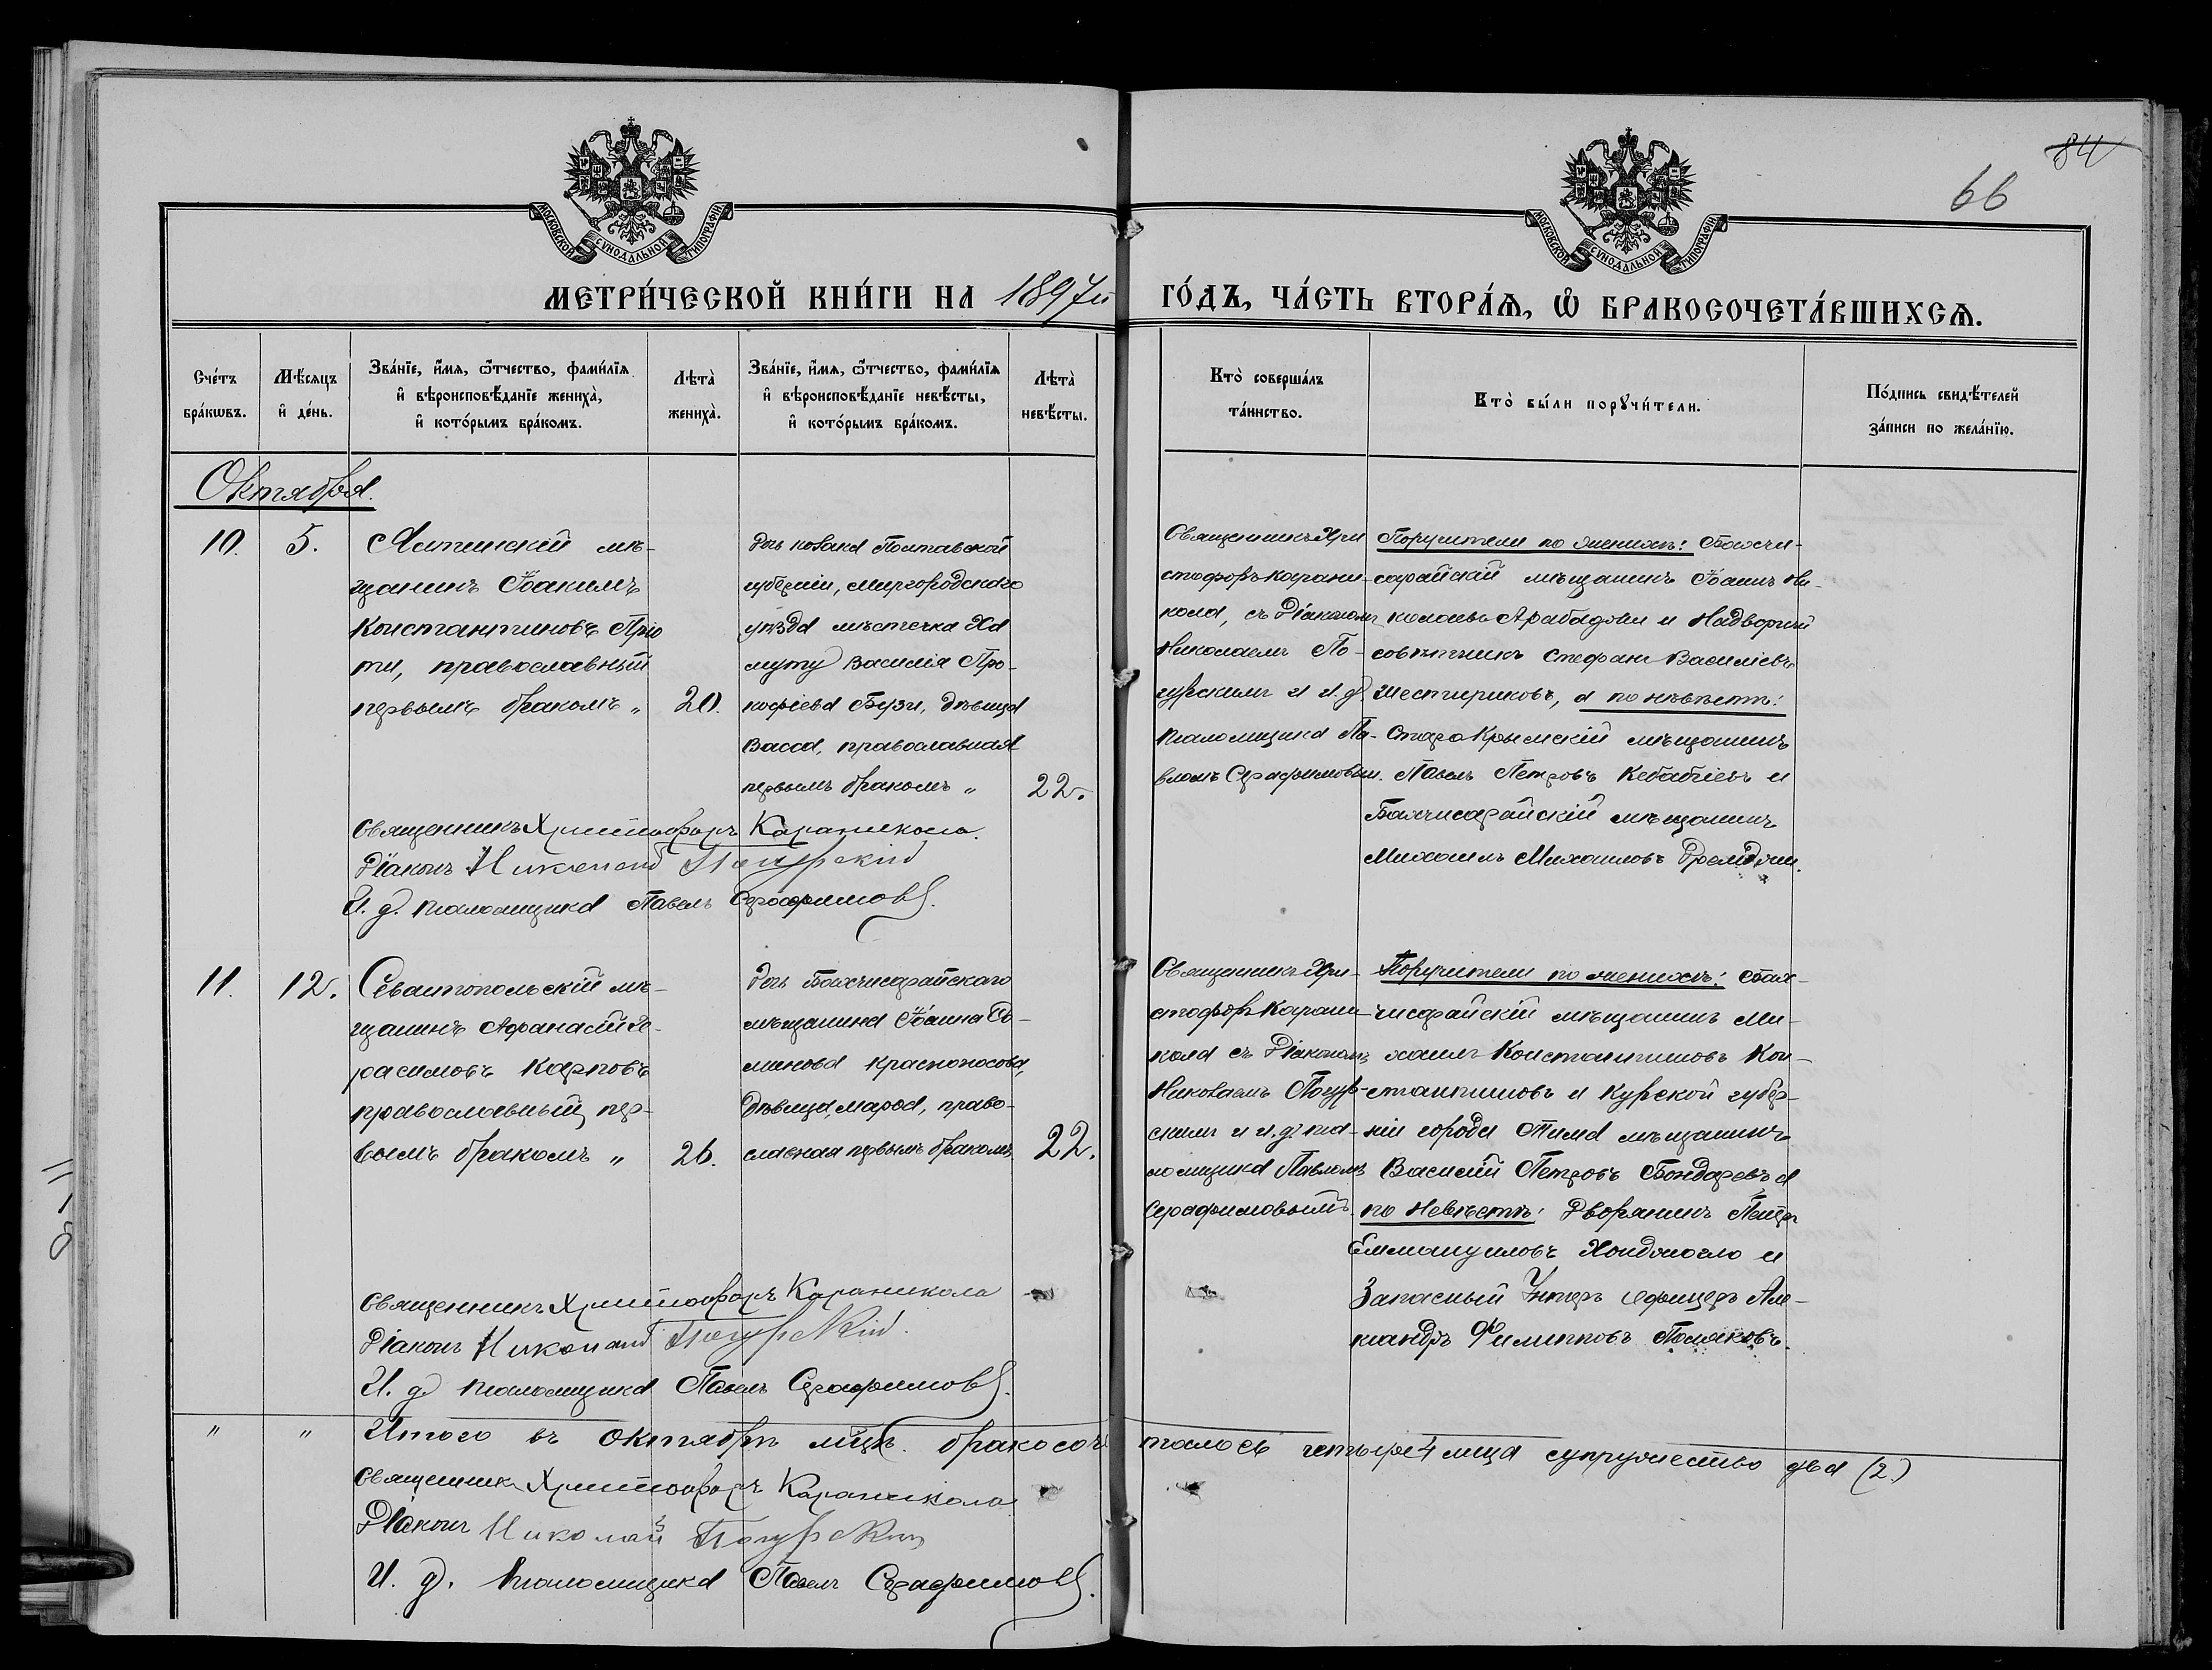 84
66
МОСКОВСКОЙ СѴНОДАЛЬНОЙ ТИПОГРАФІИ
МОСКОВСКОЙ СѴНОДАЛЬНОЙ ТИПОГРАФІИ
МЕТРИ́ЧЕСКОЙ КНИ́ГИ НА 1897й ГО́ДЪ, ЧА́СТЬ ВТОРА́Ѧ, Ѽ БРАКОСОЧЕТА́ВШИХСѦ.
Сче́тъ
бра́кѡвъ.
Мѣ́сѧцъ
и҆ де́нь.
Зва́нїе, и҆́мѧ, ѻ҆́тчество, фами́лїѧ
и҆ вѣроисповѣ́данїе жениха̀,
и҆ кото́рымъ бра́комъ.
Лѣта̀
жениха̀.
Зва́нїе, и҆́мѧ, ѻ҆́тчество, фами́лїѧ
и҆ вѣроисповѣ́данїе невѣ́сты,
и҆ кото́рымъ бра́комъ.
Лѣта̀
невѣ́сты.
Кто̀ соверша́лъ
та́инство.
Кто̀ бы́ли порꙋчи́тели.
По́дпись свидѣ́телей
за́писи по жела́нїю.
Октября.
10.
5.
Ялтинскій мѣ-
щанинъ Іоакимъ
Константиновъ
ти, православный
первымъ бракомъ „
20.
дочь козака Полтавской
губерніи, Миргородскаго
уѣзда мѣстечка Хо
муту Василія Про-
кофіева Бузи, дѣвица
Васса, православная
первымъ бракомъ „
22.
Священникъ Хри
стофоръ Карани-
кола, съ Діакономъ
Николаемъ По-
гурскимъ и и. д.
псаломщика Па-
вломъ Серафимовым.
Поручители по женихѣ: Бахчи-
сарайскій мѣщанинъ Іоаннъ Ни-
колаевъ Арабаджи и Надворный
совѣтникъ Стефанъ Василіевъ
Шестериковъ, а по невѣстѣ:
Старо Крымскій мѣщанинъ
Павелъ Петровъ Кебабчіевъ и
Бахчисарайскій мѣщанинъ
Михаилъ Михаиловъ
Священникъ Христофоръ Караникола.
Діаконъ Николай Погурскій
И. д. псаломщика Павелъ Серафимовъ.
11.
12.
Севастопольскій мѣ-
щанинъ Афанасій Ге-
расимовъ Карповъ
православный, пер-
вымъ бракомъ „
26.
дочь Бахчисарайскаго
мѣщанина Іоанна Се-
менова Красноносова,
дѣвица, право-
славная первымъ бракомъ
22.
Священникъ Хри-
стофоръ Карани-
кола съ Діакономъ
Николаемъ Погур-
скимъ и и. д. пса-
ломщика Павломъ
Серафимовымъ.
Поручители по женихѣ: Бах-
чисарайскій мѣщанинъ Ми-
хаилъ Константиновъ Кон-
стантиновъ и Курской губер-
ніи города Тима мѣщанинъ
Василій Петровъ Бондаревъ а
по Невѣстѣ: Дворянинъ Петръ
Еммануиловъ и
Запасный Унтеръ офицеръ Але-
ксандръ Филипповъ Поляковъ.
Священникъ Христофоръ Караникола
Діаконъ Николай Погурскій.
И. д. псаломщика Павелъ Серафимовъ.
„ „ Итого въ Октябрѣ мцѣ. бракосоче талось четыре 4 лица супружество два (2.)
Священникъ Христофоръ Караникола
Діаконъ Николай Погурскій
И. д. псаломщика Павелъ Серафимовъ.